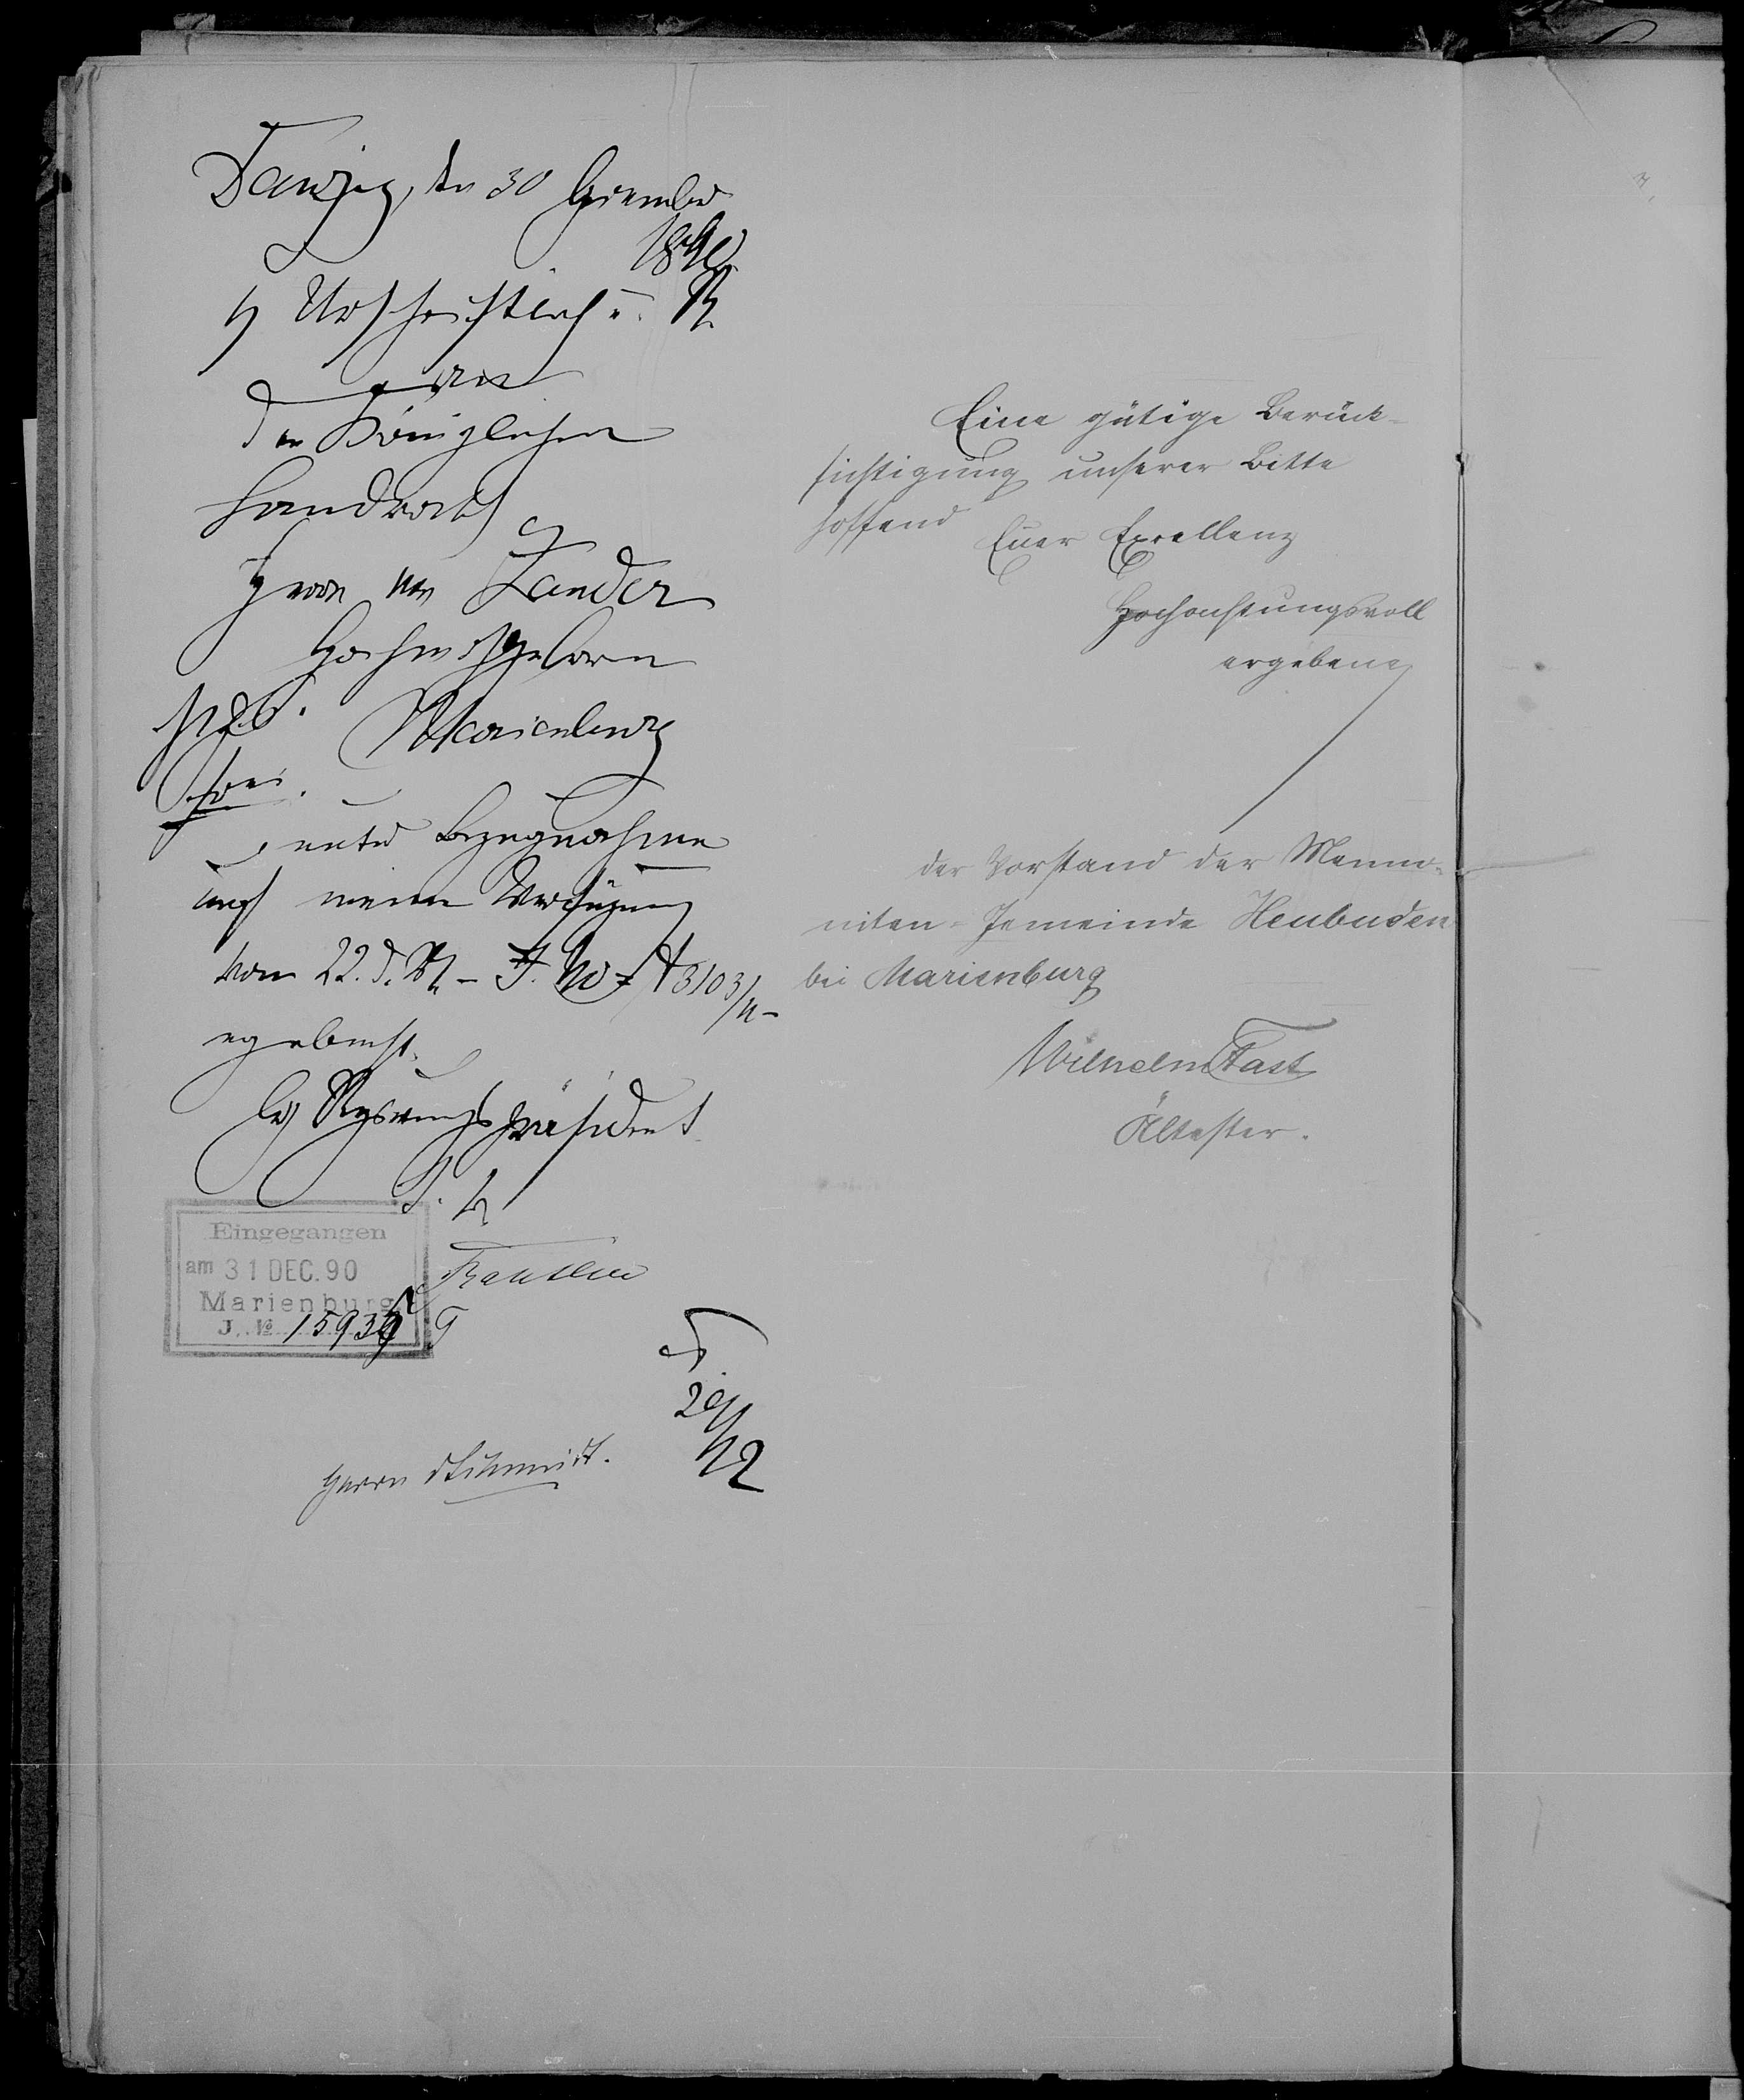 Danzig, den 30 Dezember
1890
Urschriftlich u. R
an
den Königlichen
Landrath
Herrn von Zander
Hochwohlgeboren
Marienburg
unter Bezugnahme
auf meine Verfügung
vom 22. d. Mts - J. No 3103/11 -
ergebenst.
Der Regierungspräsident
J. V.
Eingegangen
am 31 DEC. 90
Marienburg
J. № 15939
29/12
Herrn Schmidt.
Eine gütige Berück-
sichtigung unserer Bitte
hoffend
Euer Excellenz
Hochachtungsvoll
ergebene
der Vorstand der Menno-
niten-Gemeinde Heubuden
bei Marienburg
Wilhelm Fast
Ältester.